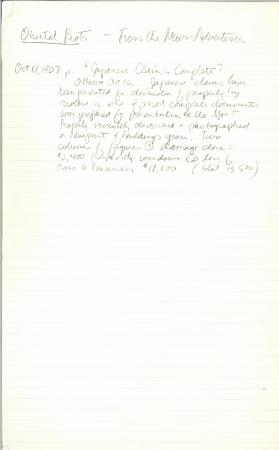 Oriental Riots - From the News-Advertiser
Oct 17, 1907 p. "Japanese Claim is Complete"
Ottawa Oct 16. Japanese claims have
been presented for destruction of property by
rioters in one of most complete documents
ever prepared for presentation to the Govt
Property minutely described - photographed
& blueprint of buildings given. Two
columns of figures ① damage done =
$2,400 (mostly windows) ② loss of
time to business $11,100 (total 13,500)